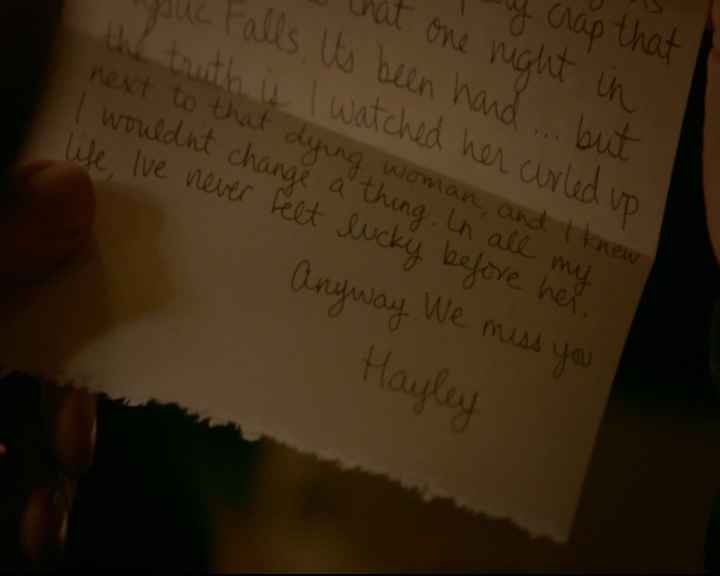 crap that
that one night in
Falls. Its been hard ... but
the truth is I watched her curled up
next to that dying woman, and I knew
I wouldn't change a thing. In all my
life, Ive never felt lucky before her.
Anyway. We miss you
Hayley